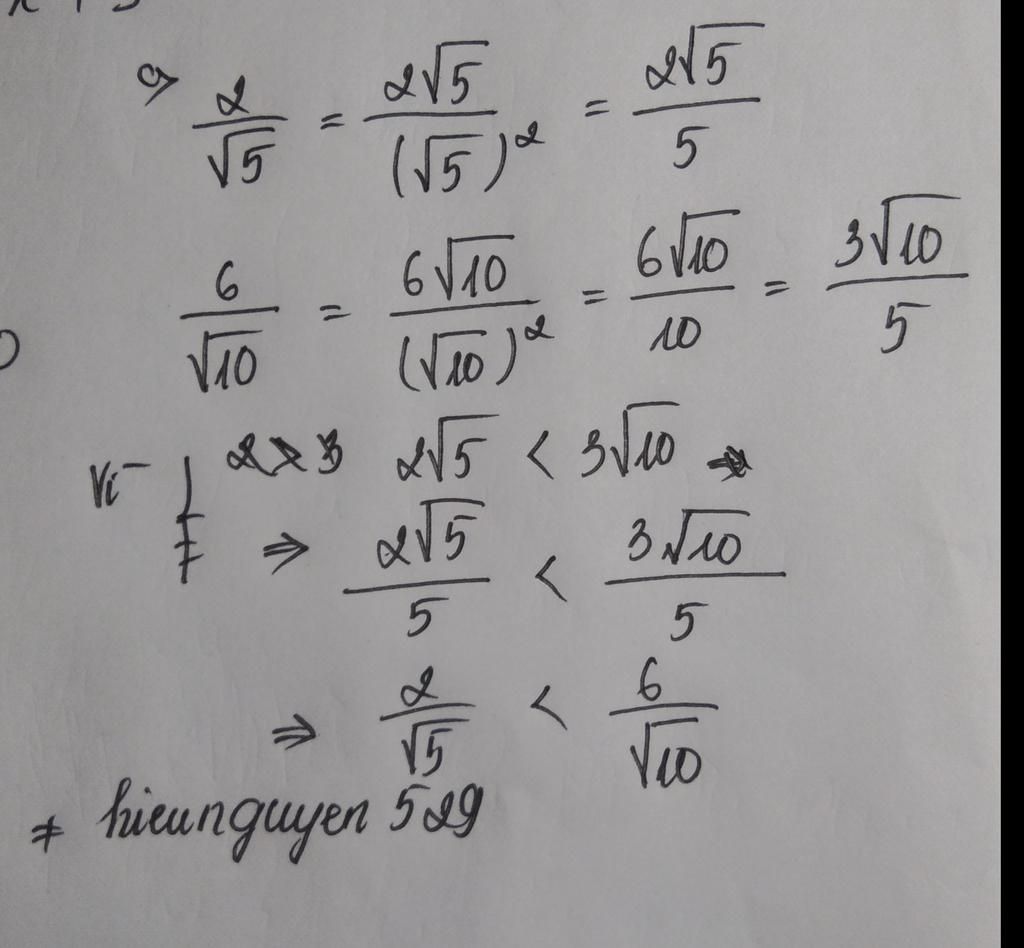 c) 2/√5 = 2√5/(√5)² = 2√5/5
6/√10 = 6√10/(√10)² = 6√10/10 = 3√10/5
Vì 2√5 < 3√10
⇒ 2√5/5 < 3√10/5
⇒ 2/√5 < 6/√10
≠ hieunguyen 529